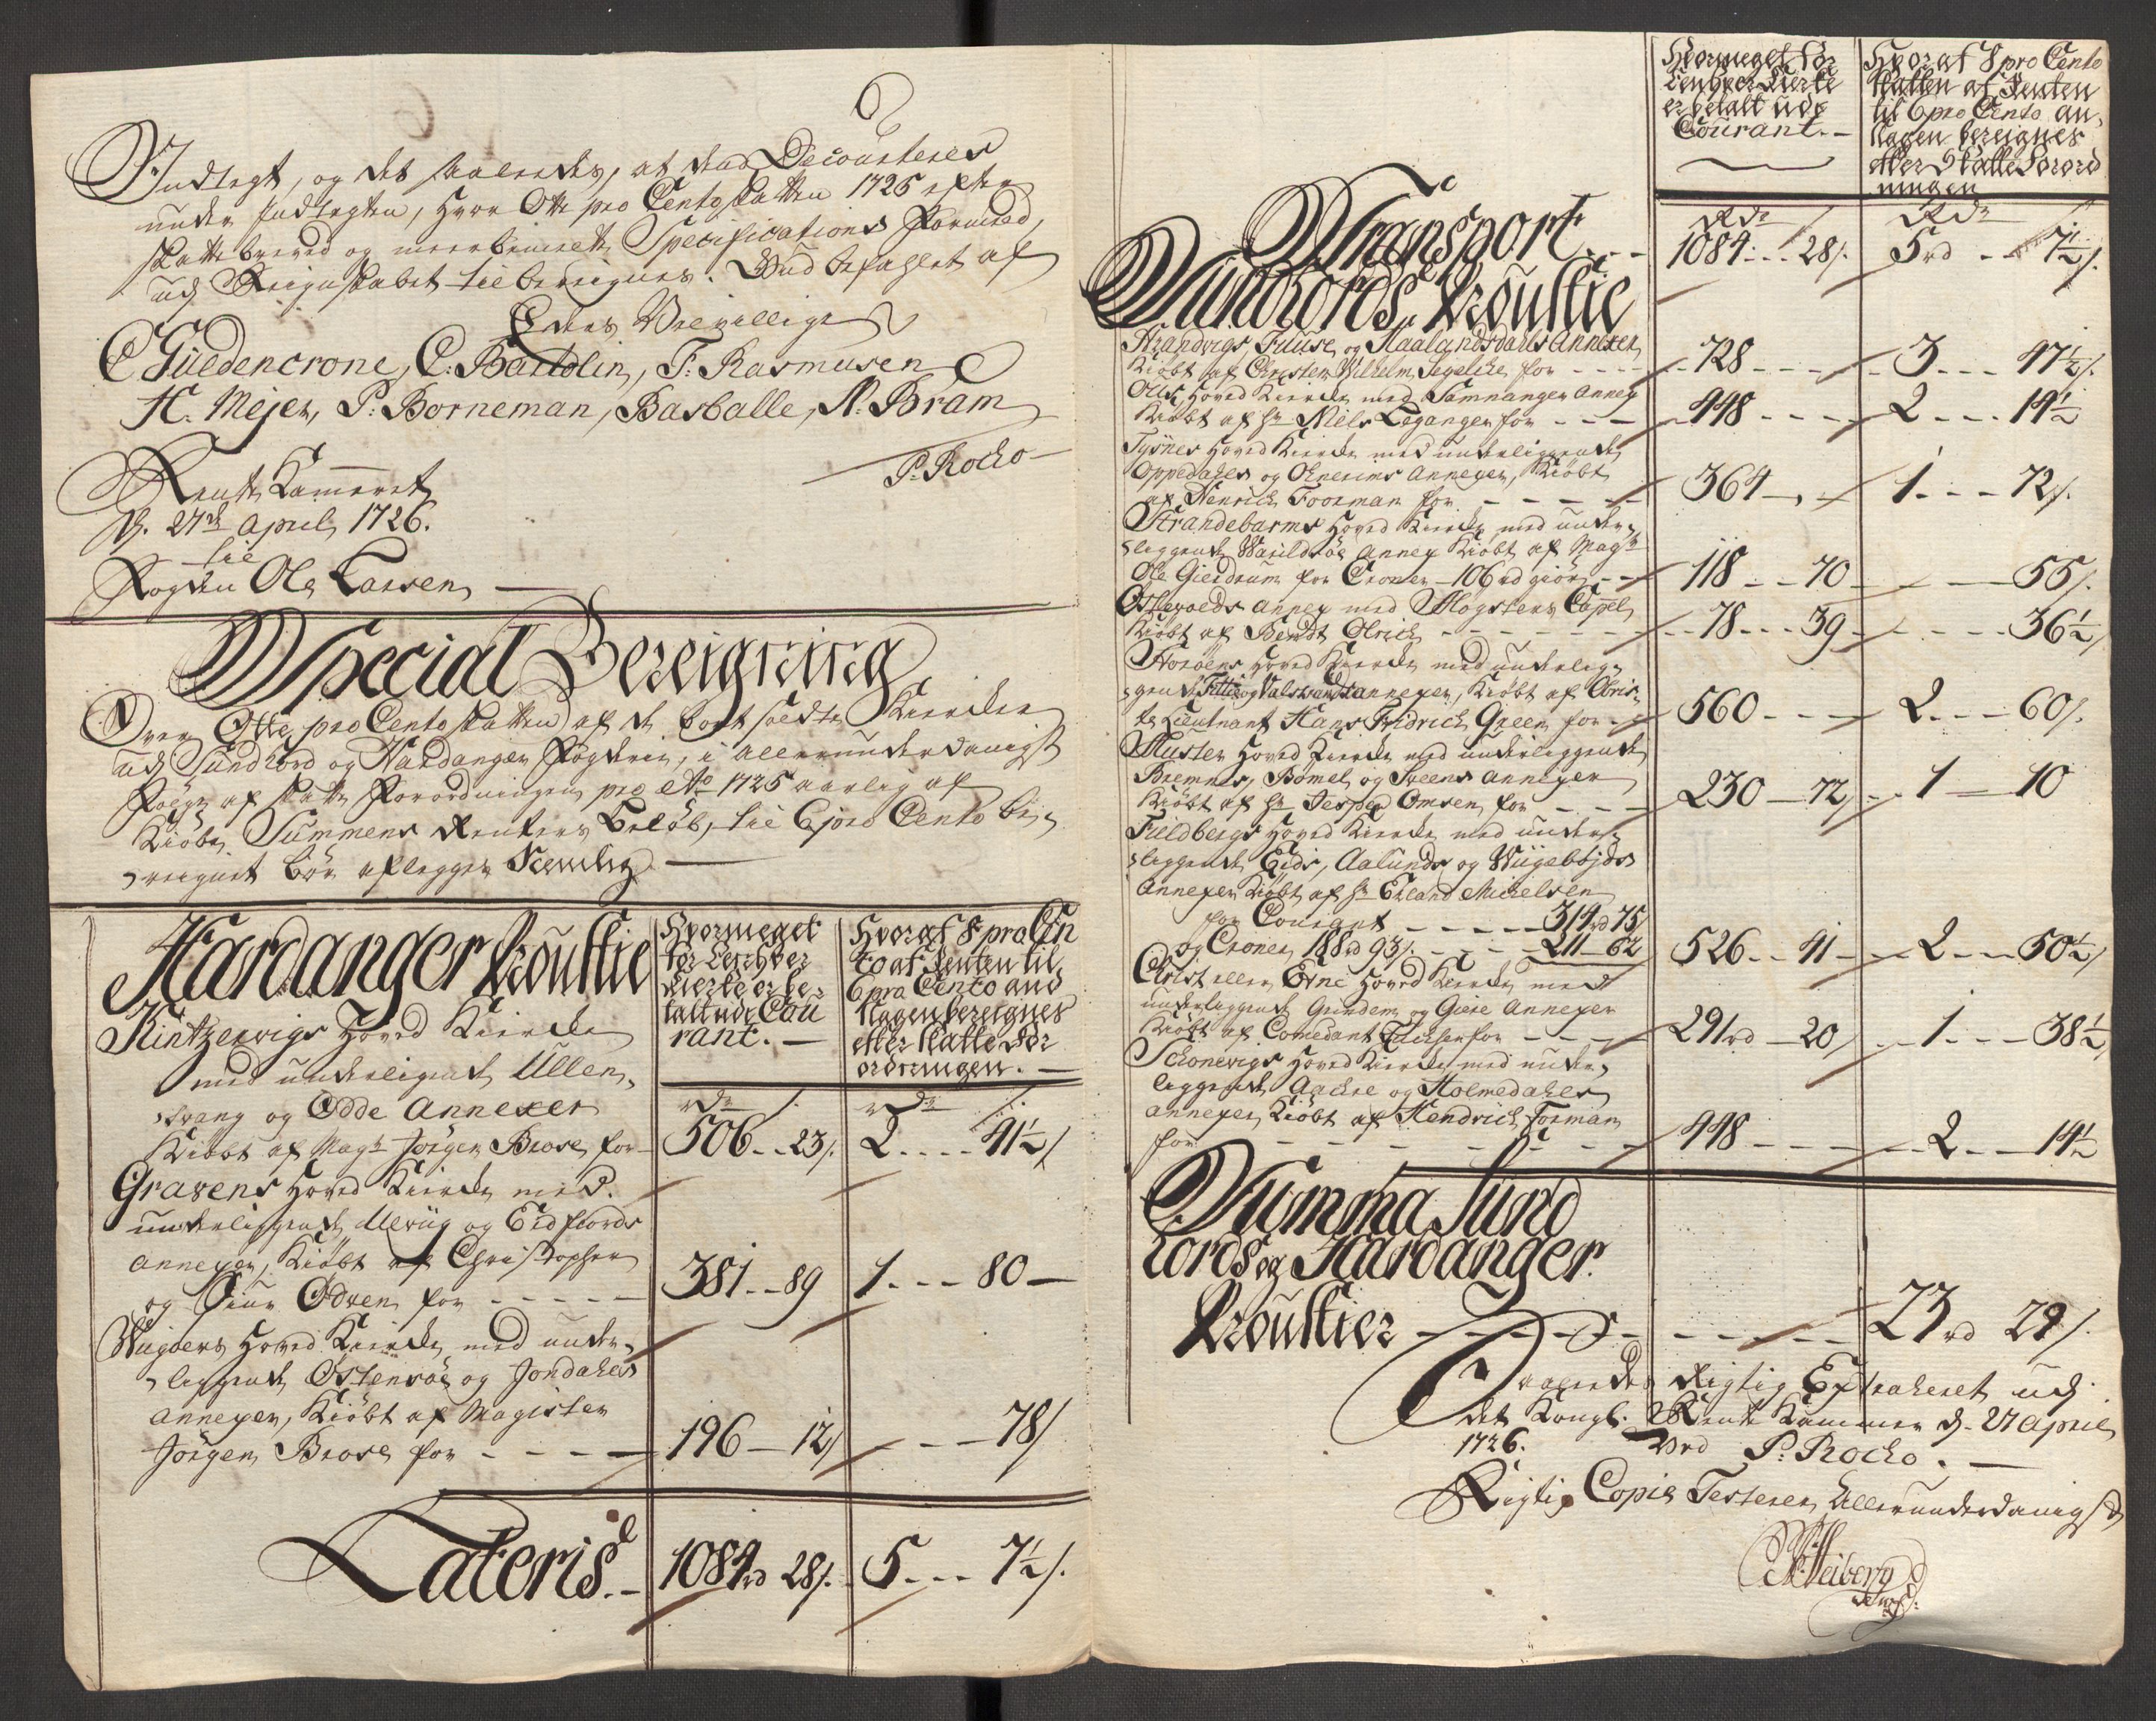 Indtegt, og det saaledes, at den Decourteres
under Indtegten, hvor Otte pro Cento skatten 1725 efter
skatte brevet og meerbemelte Specifications Formeld,
udj Reignskabet til bereignes. Vnd befahlet af
Eders Velvillige
C Güldencrone, C. Bartolin, F. Rasmusen
H. Mejer, P. Borneman, Basballe, N. Bram
P. Rocho
Rente Cammeret
d. 27de April 1726.
til
Fogden Ole Larsen
Special Bereigning
Over Otte pro Cento skatten af de bort soldte Kiercker
udj Sundhord og Hardanger Fogderie, i allerunderdanigst
Følge af skatte Forordningen pro Ao 1725 aarlig af
Kiøbe Summens Renters Beløb, til 6 pro Cento be,
reignet bør aflegges Nemlig
Hardanger Proustie
Hvormeget
for Enhver
Kierke er be,
talt udj Cou
rant.
Hvoraf 8 pro Cen
to af Renten til
6 pro Cento and
slagen bereignes
efter skatte For
ordningen.
Kintzervigs Hoved Kiercke
med underligende Ullens,
vang og Odde Annexer
Kiøbt af Magr Jørgen Brose for
rdr 506 - - 23 s. rdr 2 - - - - 41½ s
Gravens Hoved Kiercke med
underliggende Ulvüg og Eidfiords
Annexer, Kiøbt af Christopher
og Siur Odven for - - - - -
381 - - 89 1 - - - 80
Wiigøers Hoved Kiercke med under,
liggende Østensøe og Jondahls
Annexer, Kiøbt af Magister
Jørgen Brose for - - - -
196 - 12 s - - - 78 s
Lateris. 1084 rd 28 s. 5 - - - 7½ s.
Hvormeget for
Enhver Kierke
er betalt udj
Courant.
Hvoraf 8 pro Cento
skatten af Renten
til 6 pro Cento an,
slagen bereignes
efter Skatte Forord
ningen
Transport - - -
Rdr 1084 - - - 28 s. Rdr 5 rd - - 7½ s.
Sundhords Proustie
Strandvigs, Fuuse og Haalandsdals Annexer
Kiøbt af Christen Wilhelm Segelche for - - - -
728 - - - 3 - - - 47½ s.
Ous Hoved Kiercke med Samnanger Annex
Kiøbt af Hr Niels Leganger for - - -
448 - - - - 2 - - - 14½
Tysnes Hoved Kiercke med underliggende
Oppedahls og Onerims Annexer, Kiøbt
af Henrich Foorman for - - - -
364 - - 1 - - - 72 s.
Strandebarms Hoved Kiercke med under,
liggende Warildsøe Annex Kiøbt af Magr
Ole Gierdrum for Croner 106 rd giør - -
118 - - 70 - - - 55 s.
Østevolds Annex med Møgsters Capel
Kiøbt af Bendt Olrich - - - - - -
78 - - - 39 - - - - 36½ s
Storøens Hoved Kiercke med underlig,
gende Fittie og Valstrands Annexer, Kiøbt af Obris,
te Lieutnant Hans Fridrich Green for - -
560 - - - 2 - - - 60 s.
Muster Hoved Kiercke med underliggende
Bremnes, Bømel og Sveens Annexer
Kiøbt af Hr Jesper Omsen for - - -
230 - 72 1 - 10
Fieldbergs Hoved Kiercke med under,
liggende Eids, Aalunds og Wiigebøjds
Annexer Kiøbt af Hr Erland Michelsen
for Courant - - - - - 314 rd 75 s
og Croner 188 rd 93 s. - - - 211 - 62
526 - - 41 - - 2 - - - 50½ s
Christ eller Etne Hoved Kiercke med
underliggende Grindem og Giere Annexer
Kiøbt af Comedant Erichsen for - - - -
291 rd - 20 s 1 - - - 38½ s
Schonevigs Hoved Kiercke med under,
liggende Aachre og Holmedahls
Annexer, Kiøbt af Hendrich Forman
for - - - - - - -
448 - - - 2 - - - 14½
Summa Sund
hords og Hardanger
Proustier - - - - - - - - - 23 rd 29 s.
Saaledes Rigtig Extraheret udj
det Kongl. Rente Kammer d. 27 April
1726. Ved P. Rocho.
Rigtig Copie Testerer Allerunderdanigst
Heiberg